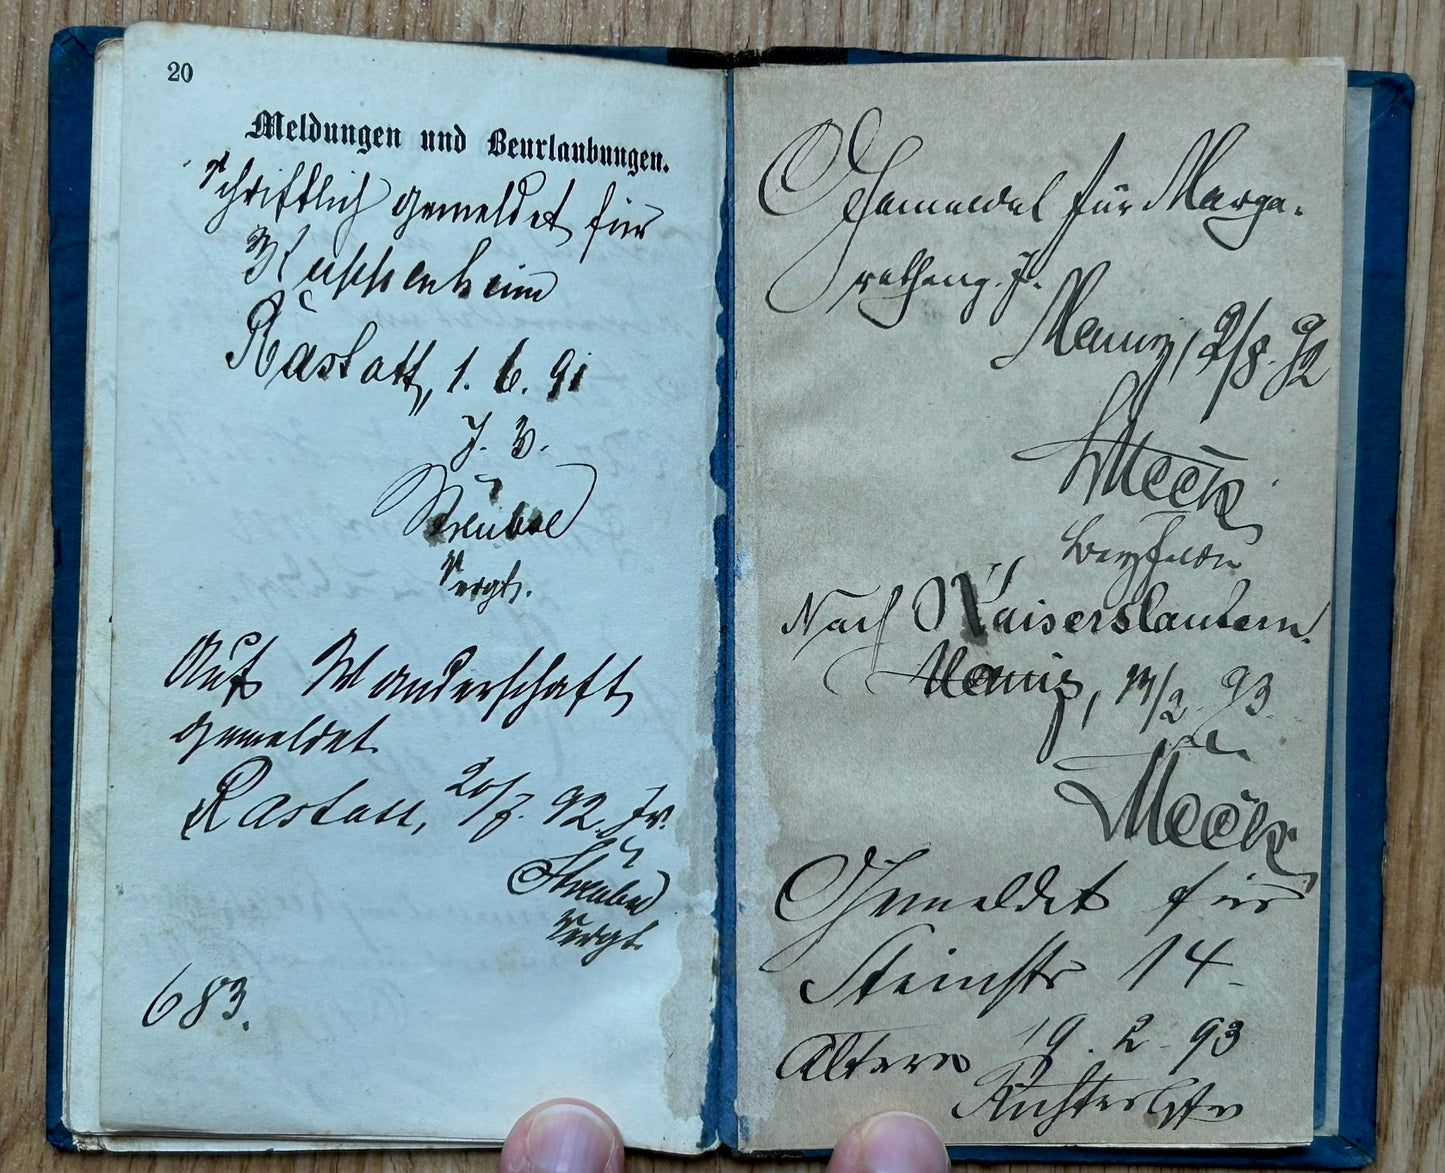 20
Meldungen und Beurlaubungen.
Schriftlich gemeldet für
Kuppenheim
Rastatt, 1. 6. 91
J. V.
Streubel
Vergt.
Auf Wanderschaft
gemeldet
Rastatt, 20/7. 92.
Streubel
Vergt.
683.
Gemeldet für Marga-
retheng.
Mainz, 2/8. 92
Meck
Nach Kaiserslautern.
Mainz, 14/2. 93
Meck
Gemeldet für
Steinstr 14
19. 2. 93
Richter